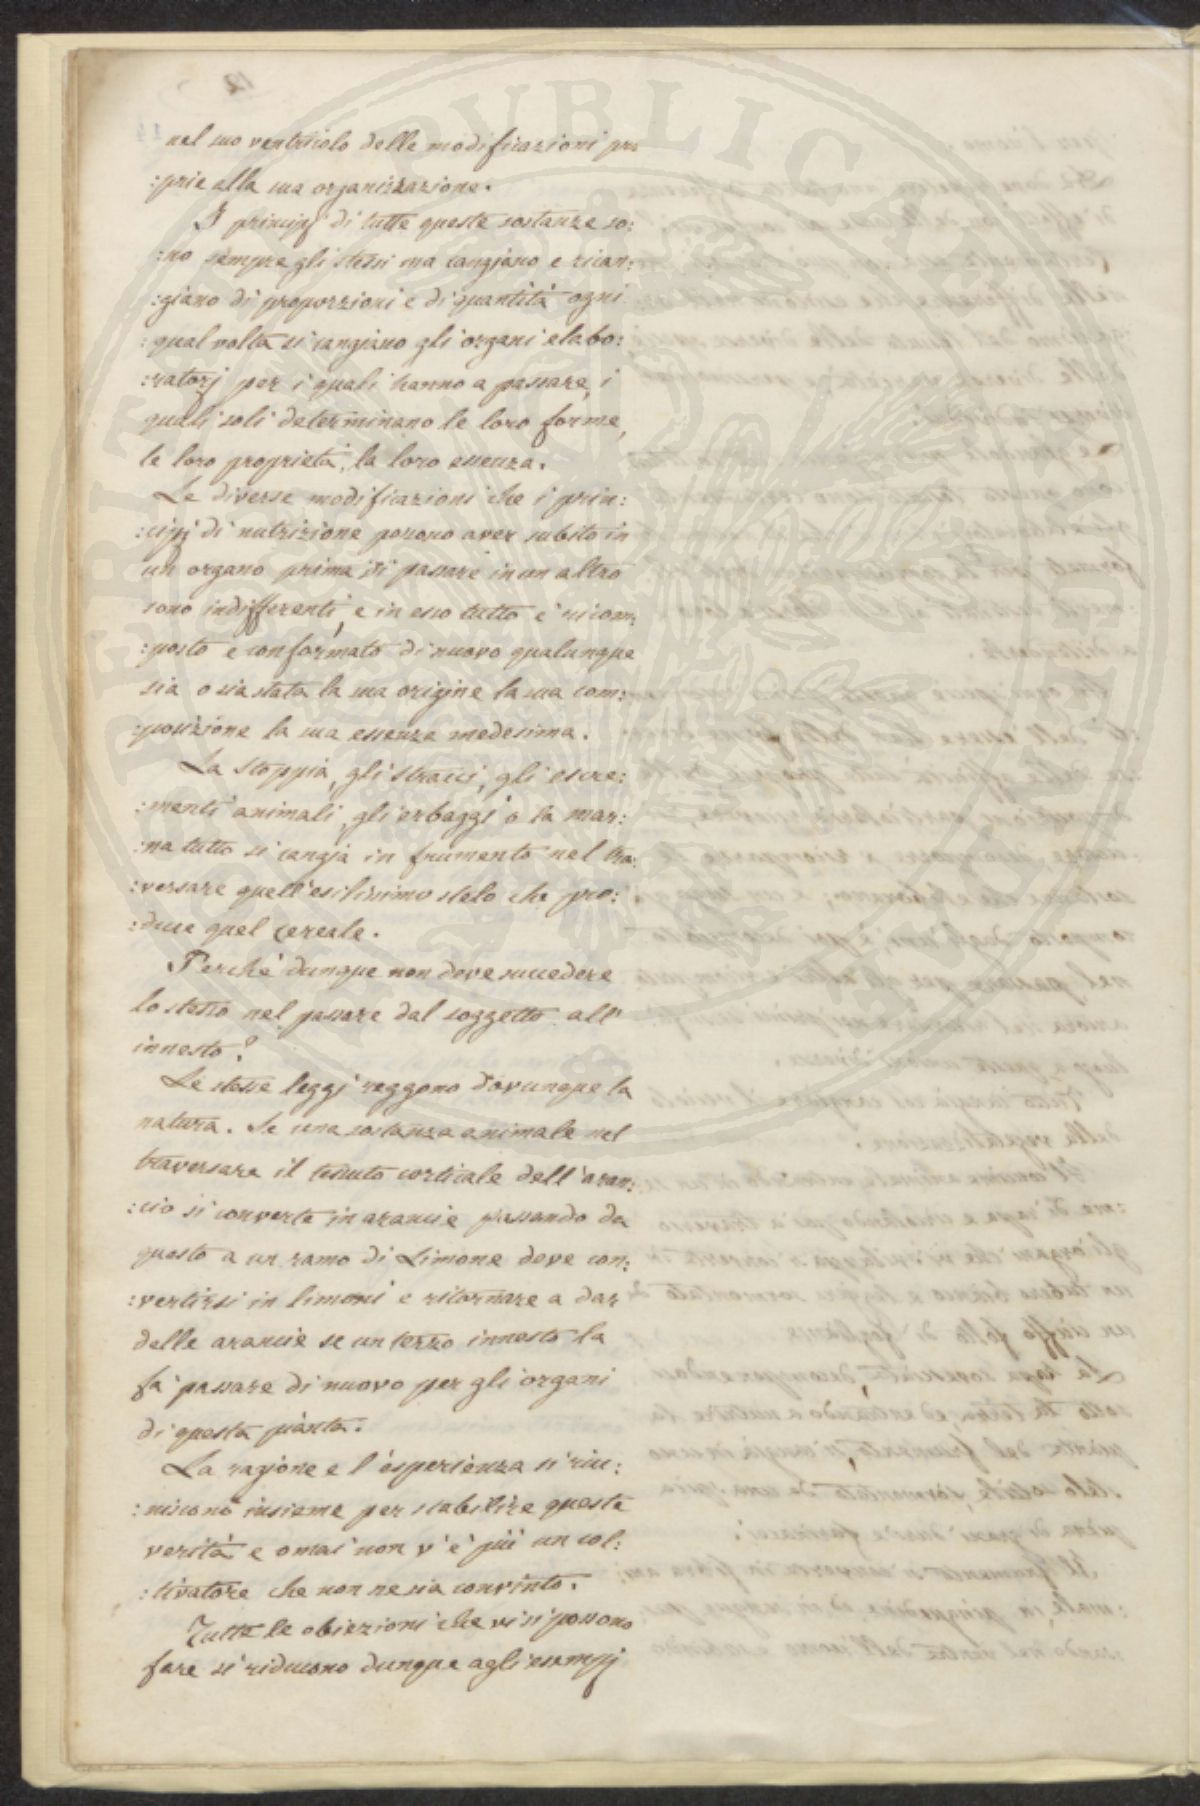 12
nel suo ventricolo delle modificazioni pro
:prie alla sua organizzazione.
I principj di tutte queste sostanze so:
:no sempre gli stessi ma cangiano e rican:
:giano di proporzioni e di quantità ogni
:qual volta si cangiano gli organi elabo:
:ratorj per i quali hanno a passare, i
quali soli determinano le loro forme,
le loro proprietà, la loro essenza.
Le diverse modificazioni che i prin:
:cipj di nutrizione possono aver subito in
un organo prima di passare in un altro
sono indifferenti, e in esso tutto è ricom:
:posto e conformato di nuovo qualunque
sia o sia stata la sua origine la sua com:
:posizione la sua essenza medesima.
La stoppia, gli stracci, gli escre:
:menti animali, gli erbaggi o la mar:
:na tutto si cangia in frumento nel tra:
:versare quell'esilissimo stelo che pro:
:duce quel cereale.
Perchè dunque non deve succedere
lo stesso nel passare dal soggetto all'
innesto?
Le stesse leggi reggono dovunque la
natura. Se una sostanza animale nel
traversare il tessuto corticale dell'aran:
:cio si converte in arancie passando da
questo a un ramo di Limone deve con:
:vertirsi in limoni e ritornare a dar
delle arancie se un terzo innesto la
fa passare di nuovo per gli organi
di questa pianta.
La ragione e l'esperienza si riu:
:niscono insieme per stabilire queste
verità e omai non v'è più un col:
:tivatore che non ne sia convinto.
Tutte le obiezioni che vi si possono
fare si riducono dunque agli esempj